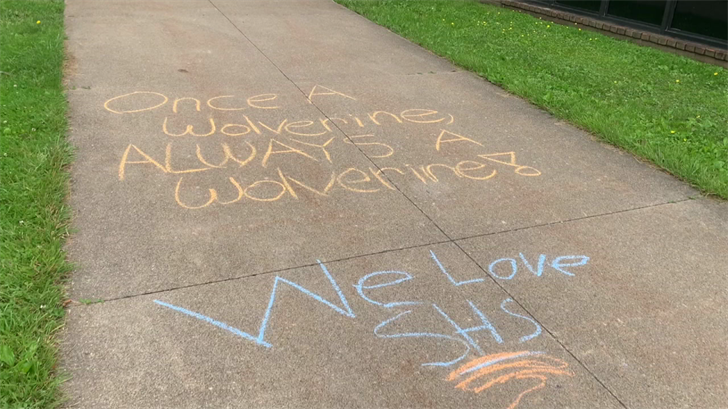 Once A
Wolverine,
ALWAYS A
Wolverine
We Love
SHS